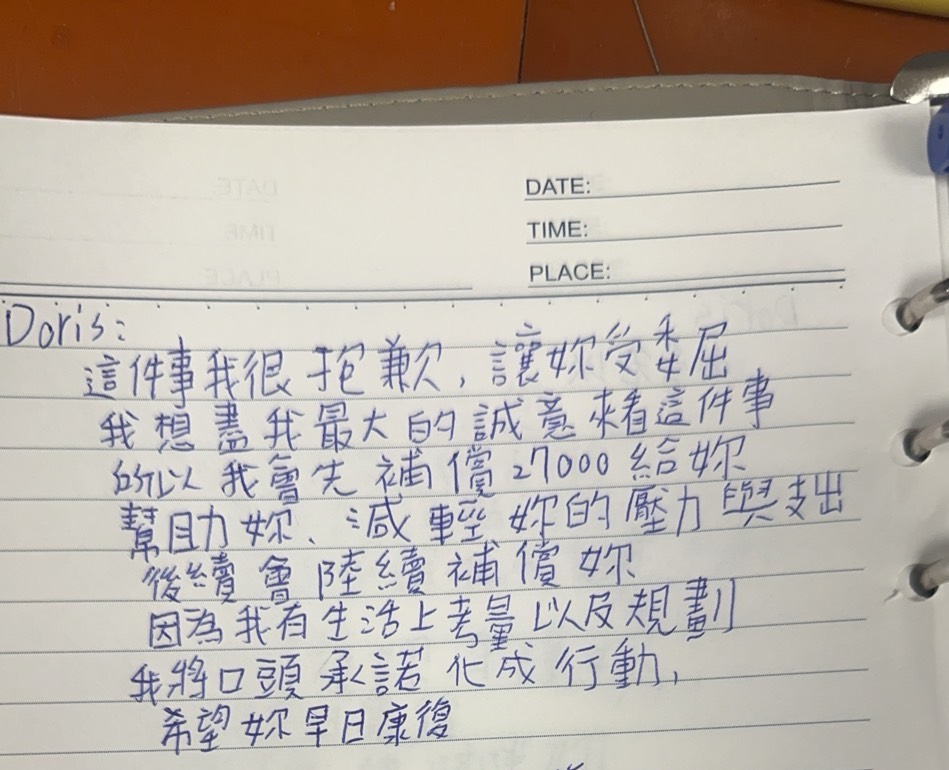 DATE:
TIME:
PLACE:
Doris:
這件事我很抱歉,讓妳受委屈
我想盡我最大的誠意來看這件事
所以我會先補償27000給妳
幫助妳、減輕妳的壓力與支出
後續會陸續補償妳
因為我有生活上考量以及規劃
我將口頭承諾化成行動,
希望妳早日康復